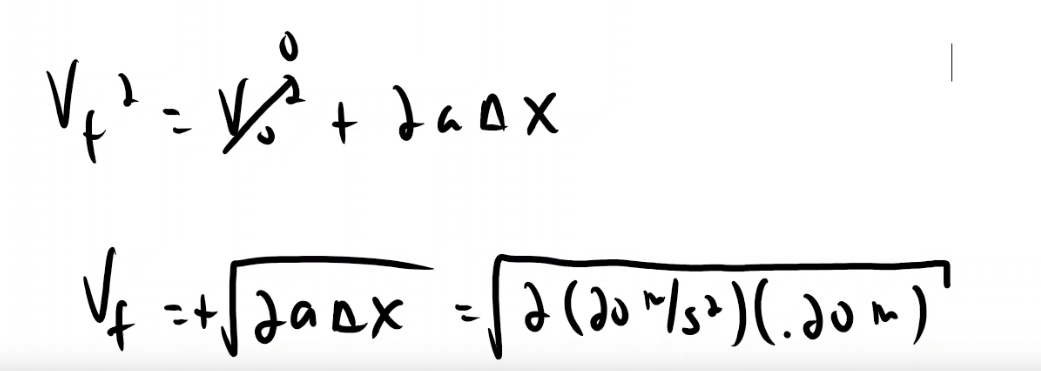 V_f² = V₀²↗0 + 2aΔx
V_f = +√(2aΔx) = √(2(20 m/s²)(.20 m))